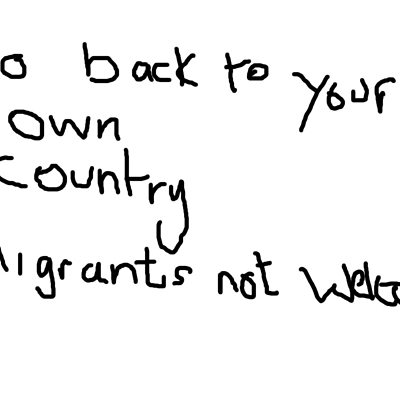 o back to your
own
country
igrants not Welco